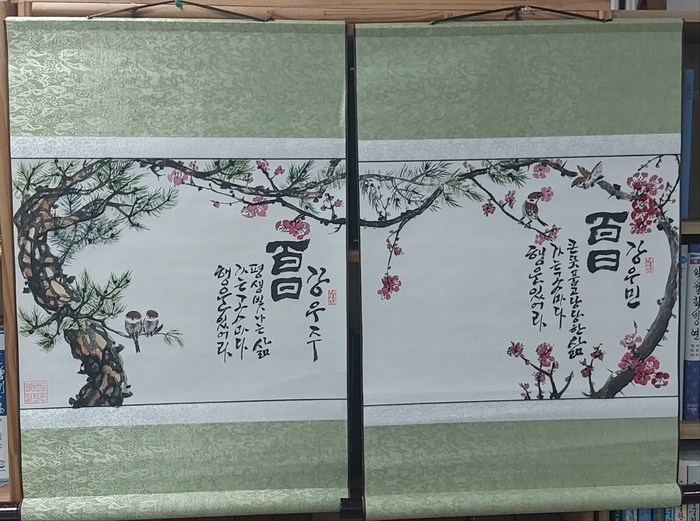 강우주
百日
평생 빛나는 삶
가는 곳마다
행운 있어라
강우민
百日
큰 뜻 품고 당당한 삶
가는 곳마다
행운 있어라